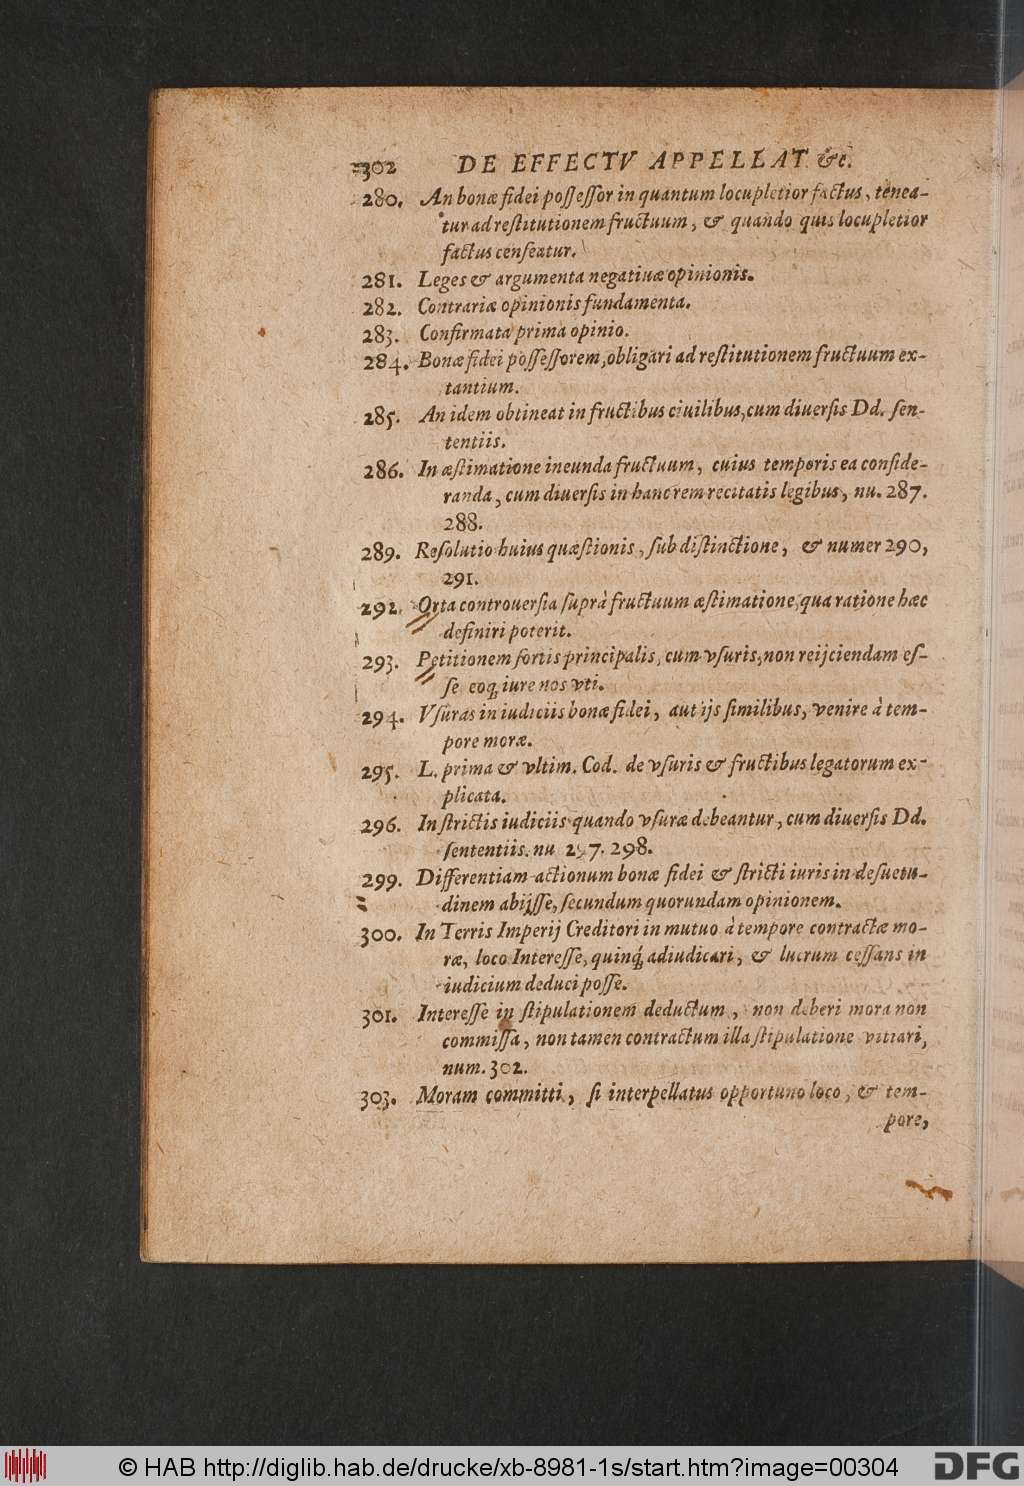 302 DE EFFECTV APPELLAT &c.
280. An bonæ fidei possessor in quantum locupletior factus, tenea-
tur ad restitutionem fructuum, & quando quis locupletior
factus censeatur.
281. Leges & argumenta negatiuæ opinionis.
282. Contrariæ opinionis fundamenta.
283. Confirmata prima opinio.
284. Bonæ fidei possessorem, obligari ad restitutionem fructuum ex-
tantium.
285. An idem obtineat in fructibus ciuilibus, cum diuersis Dd. sen-
tentiis.
286. In æstimatione ineunda fructuum, cuius temporis ea conside-
randa, cum diuersis in hanc rem recitatis legibus, nu. 287.
288.
289. Resolutio huius quæstionis, sub distinctione, & numer 290,
291.
292. Orta controuersia suprà fructuum æstimatione, qua ratione hæc
definiri poterit.
293. Petitionem sortis principalis, cum vsuris, non reijciendam es-
se eoq; iure nos vti.
294. Vsuras in iudiciis bonæ fidei, aut ijs similibus, venire à tem-
pore moræ.
295. L. prima & vltim. Cod. de vsuris & fructibus legatorum ex-
plicata.
296. In strictis iudiciis quando vsuræ debeantur, cum diuersis Dd.
sententiis. nu 297. 298.
299. Differentiam actionum bonæ fidei & stricti iuris in desuetu-
dinem abijsse, secundum quorundam opinionem.
300. In Terris Imperij Creditori in mutuo à tempore contractæ mo-
ræ, loco Interesse, quinq; adiudicari, & lucrum cessans in
iudicium deduci posse.
301. Interesse in stipulationem deductum, non deberi mora non
commissa, non tamen contractum illa stipulatione vitiari,
num. 302.
303. Moram committi, si interpellatus opportuno loco, & tem-
pore,
© HAB http://diglib.hab.de/drucke/xb-8981-1s/start.htm?image=00304
DFG